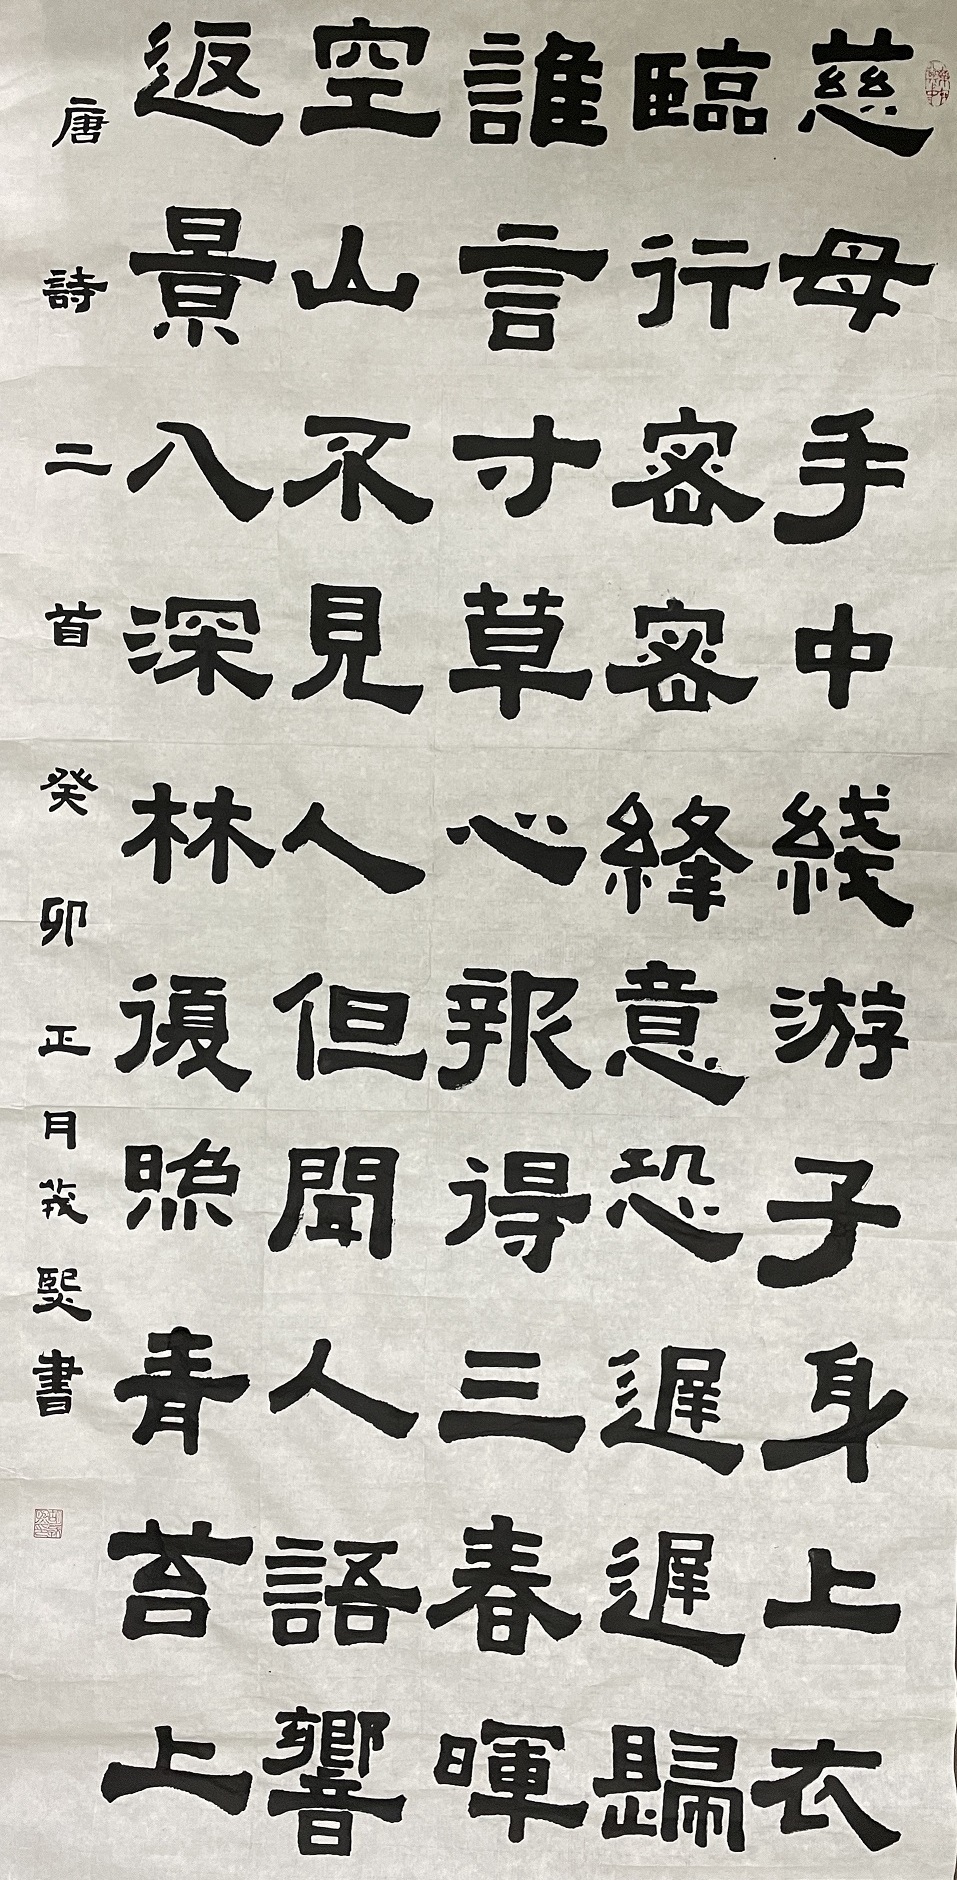 慈母手中綫游子身上衣
臨行密密縫意恐遲遲歸
誰言寸草心報得三春暉
空山不見人但聞人語響
返景入深林復照青苔上
唐詩二首癸卯正月筱熙書